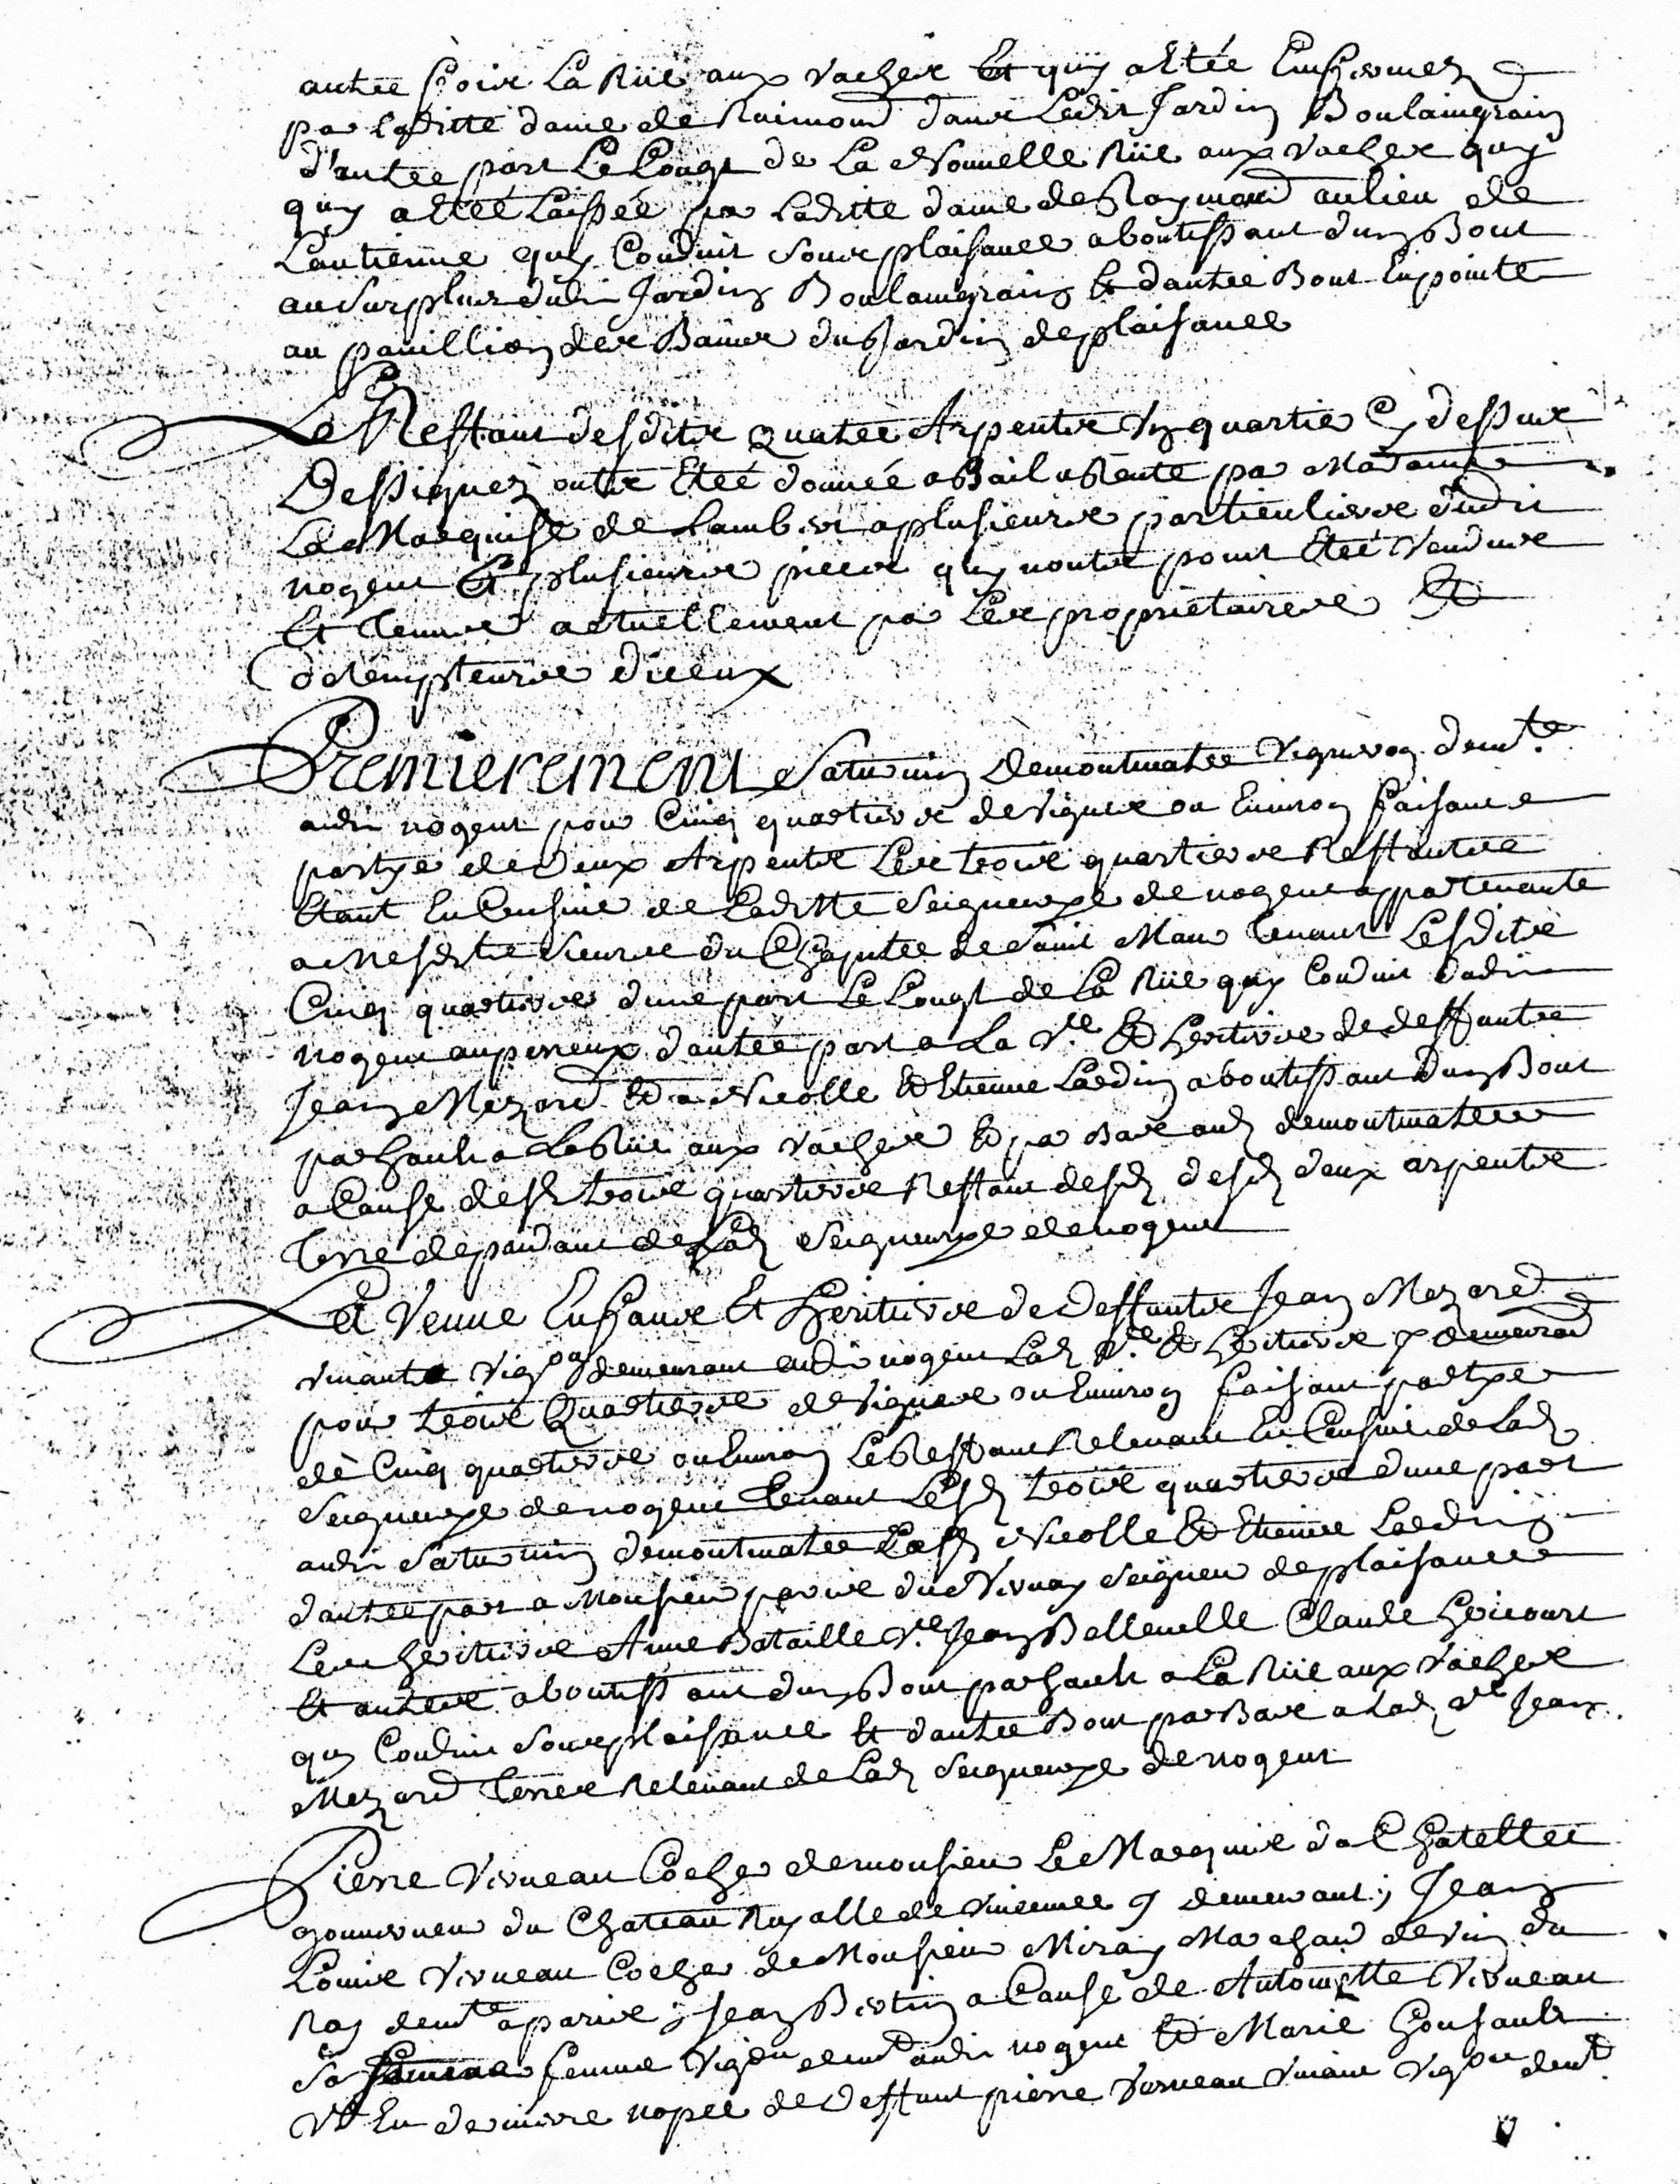 autre fois La Rüe aux vaches Et quy a Etée Enfermez
par laditte dame de Raimond dans Ledit Jardin Boulaingrain
d'autre part Le Longt de La Nouvelle Rüe aux vaches quy
quy a Etée Laissée par Laditte dame de Raymond au lieu de
Lantienne quy Conduit sous plaisance aboutissant dun Bout
au surplus dudit Jardin Boulaingrain Et dautre Bout En pointe
au pavillion des Bains du Jardin de plaisance
Le Restant desdits Quatre Arpents Un quartier Cy dessus
Designez onts Etée donnée a Bail a Rente par Madame
La Marquise de Lambert a plusieurs particuliers dudit
nogent Et plusieurs pieces quy nonts point Etée Vendues
Et Tenues actuellement par Les proprietaires Et
detempteurs diceux
Premierement Saturnin Demontmatre Vigneron demt.
audit nogent pour Cinq quartiers de Vignes ou Environ faisant
partye de deux Arpents Les trois quartiers Restants
Etant En Censive de Laditte Seigneurye de nogent appartenante
a Mesdits Sieurs du Chapitre de Saint Maur Tenant Lesdits
Cinq quartiers dune part Le Longt de La Rüe quy Conduit dudit
nogent au perreux dautre part a La Ve. Et heritiers de deffunts
Jean Mezard Et a Nicolle Et Etienne Lardin aboutissant dun Bout
par hault a La Rüe aux vaches Et par Bas aud demontmatre
a Cause desd trois quartiers Restant desd desd deux arpents
Terre dependant de Lad Seigneurye de nogent
La Veuve Enfans Et heritiers de Deffunts Jean Mezard
vivants Vigon demeurant audit nogent Lad Ve. Et heritiers y demeurand
pour trois Quartiers de Vignes ou Environ faisant partye
de Cinq quartiers ou Environ Le Restant Relevant En Censive de Lad
Seigneurye de nogent Tenant Lesd trois quartiers dune part
audit Saturnin demontmatre Lesd Nicolle Et Etienne Lardin
dautre part a Monsieur paris du Vernay Seigneur de plaisance
Les heritiers Anne Bataille Ve. Jean Bellevelle Claude hericourt
Et autres aboutissant dun Bout par hault a La Rüe aux vaches
quy Conduit sous plaisance Et dautre Bout par Bas a Lad Ve Jean
Mezard Terres Relevant de Lad Seigneurye de nogent
Pierre Verneau Cocher de monsieur Le Marquis du Chatellet
gouverneur du Chateau Royalle de Vincennes y demeurant; Jean
Louis Verneau Cocher de Monsieur Miray Marchand de Vin du
Roy demt a paris; Jean Bertin a Cause de Antoinette Verneau
sa femme Vigon demt audit nogent Et Marie Gousault
Ve En derniere nopce de Deffunt pierre Verneau vivant Vigon demt